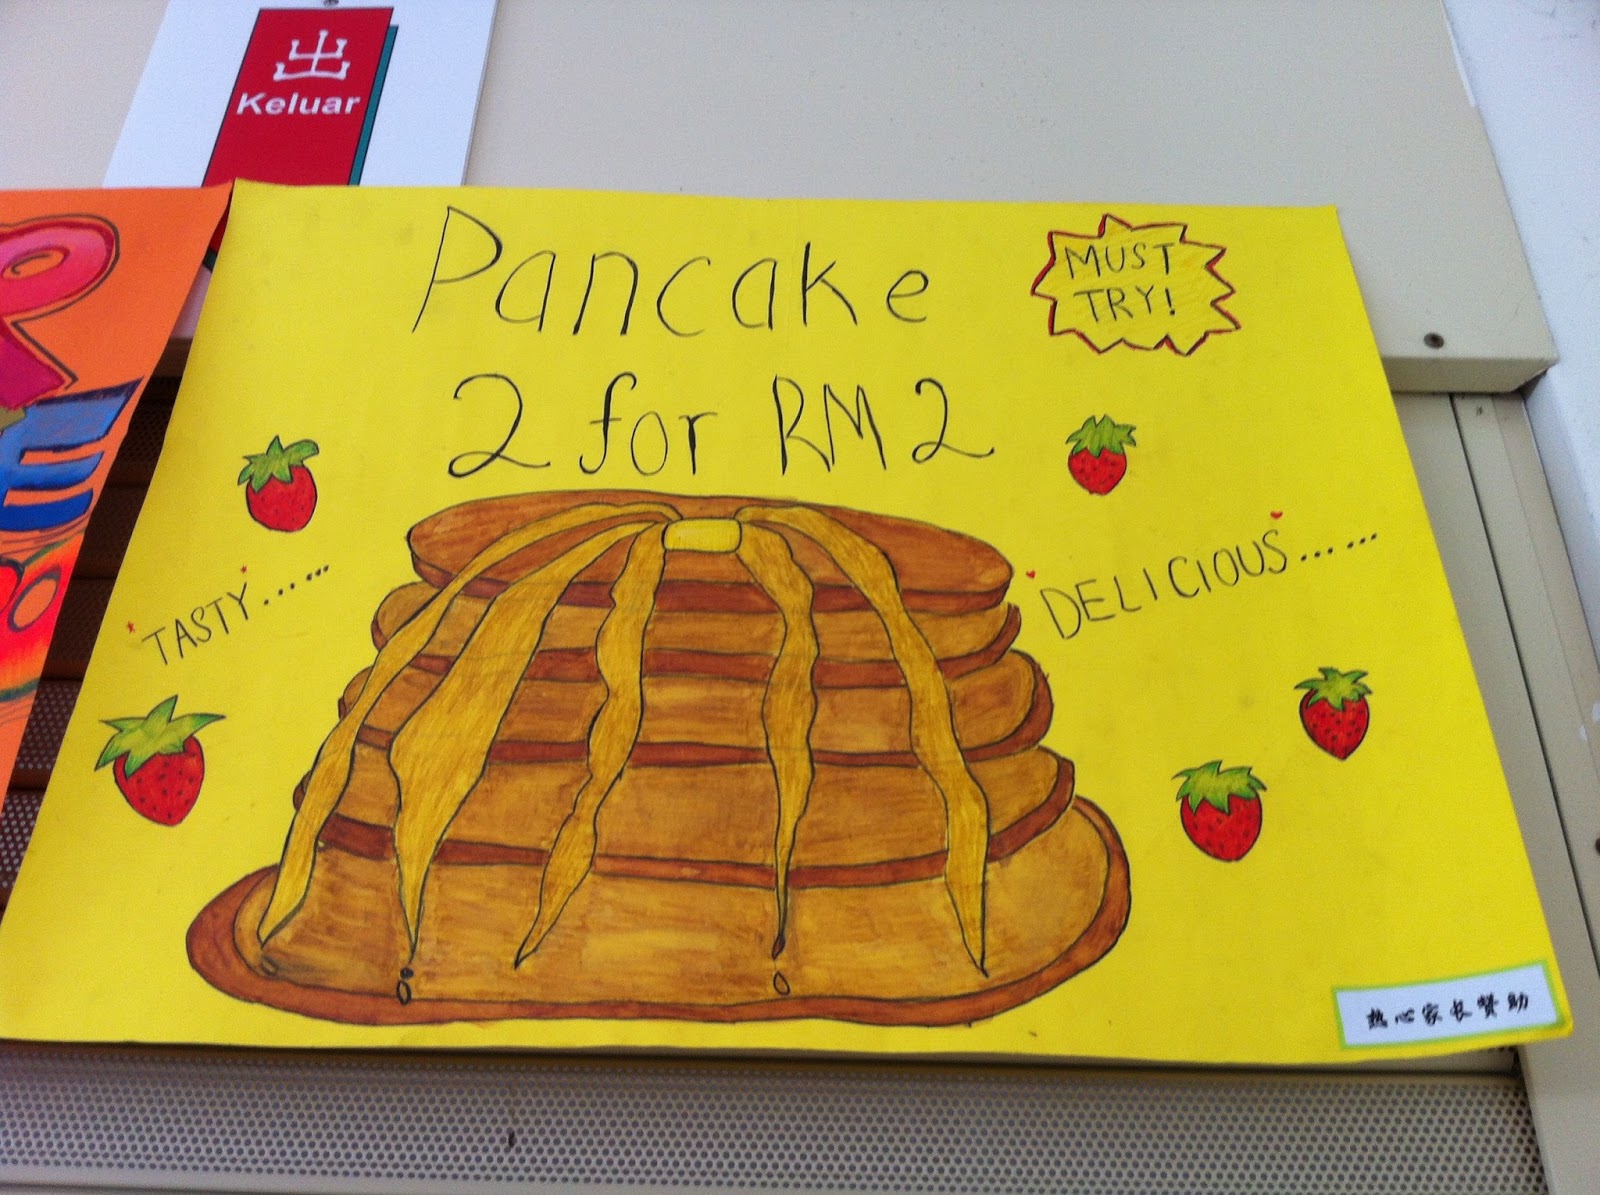 出
Keluar
Pancake
MUST
TRY!
2 for RM2
TASTY......
DELICIOUS......
热心家长赞助